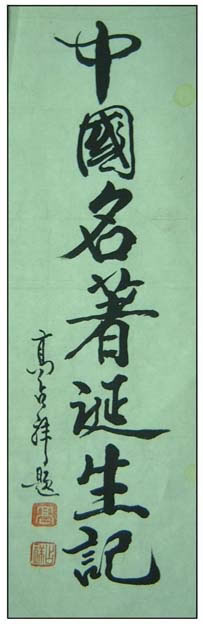 中國名著誕生記
高占祥題